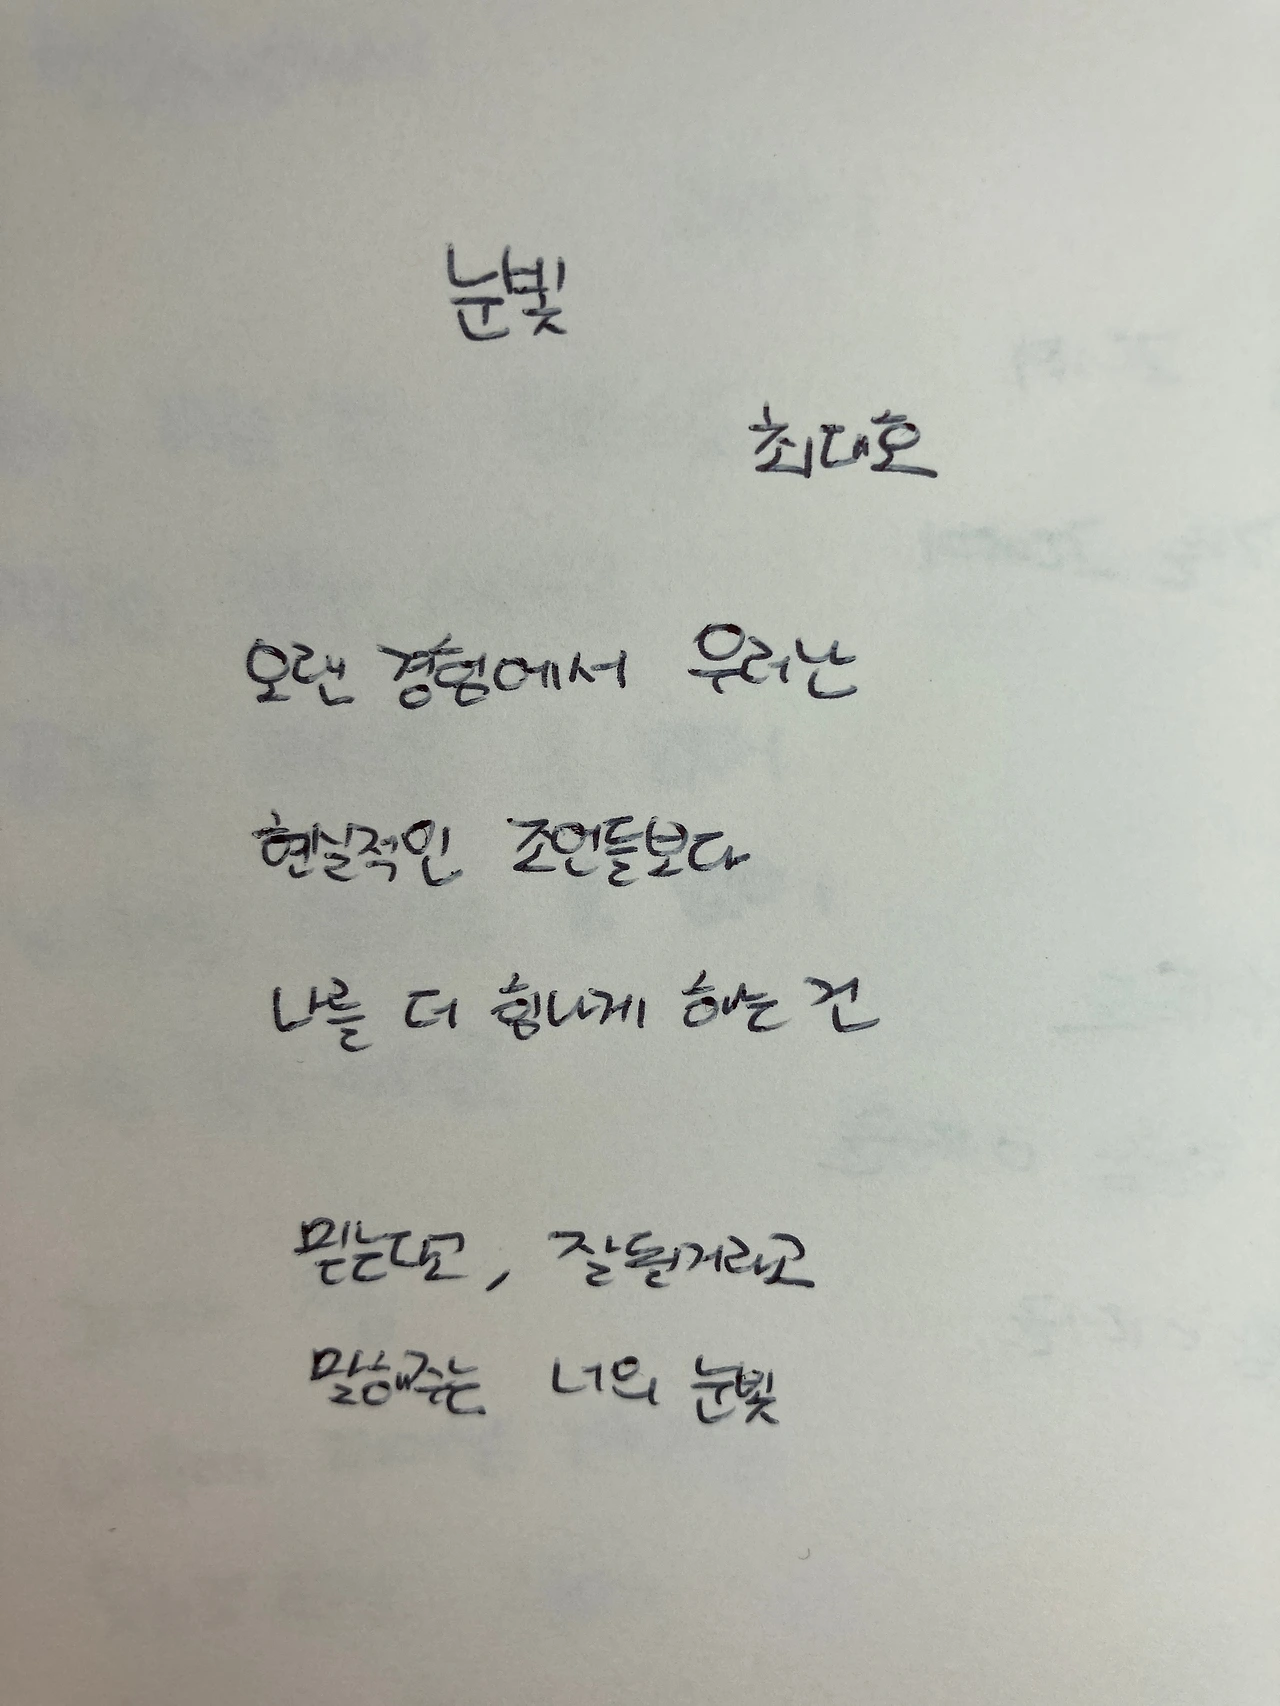 눈빛
최대호
오랜 경험에서 우러난
현실적인 조언들보다
나를 더 힘나게 하는 건
믿는다고, 잘될거라고
말해주는 너의 눈빛